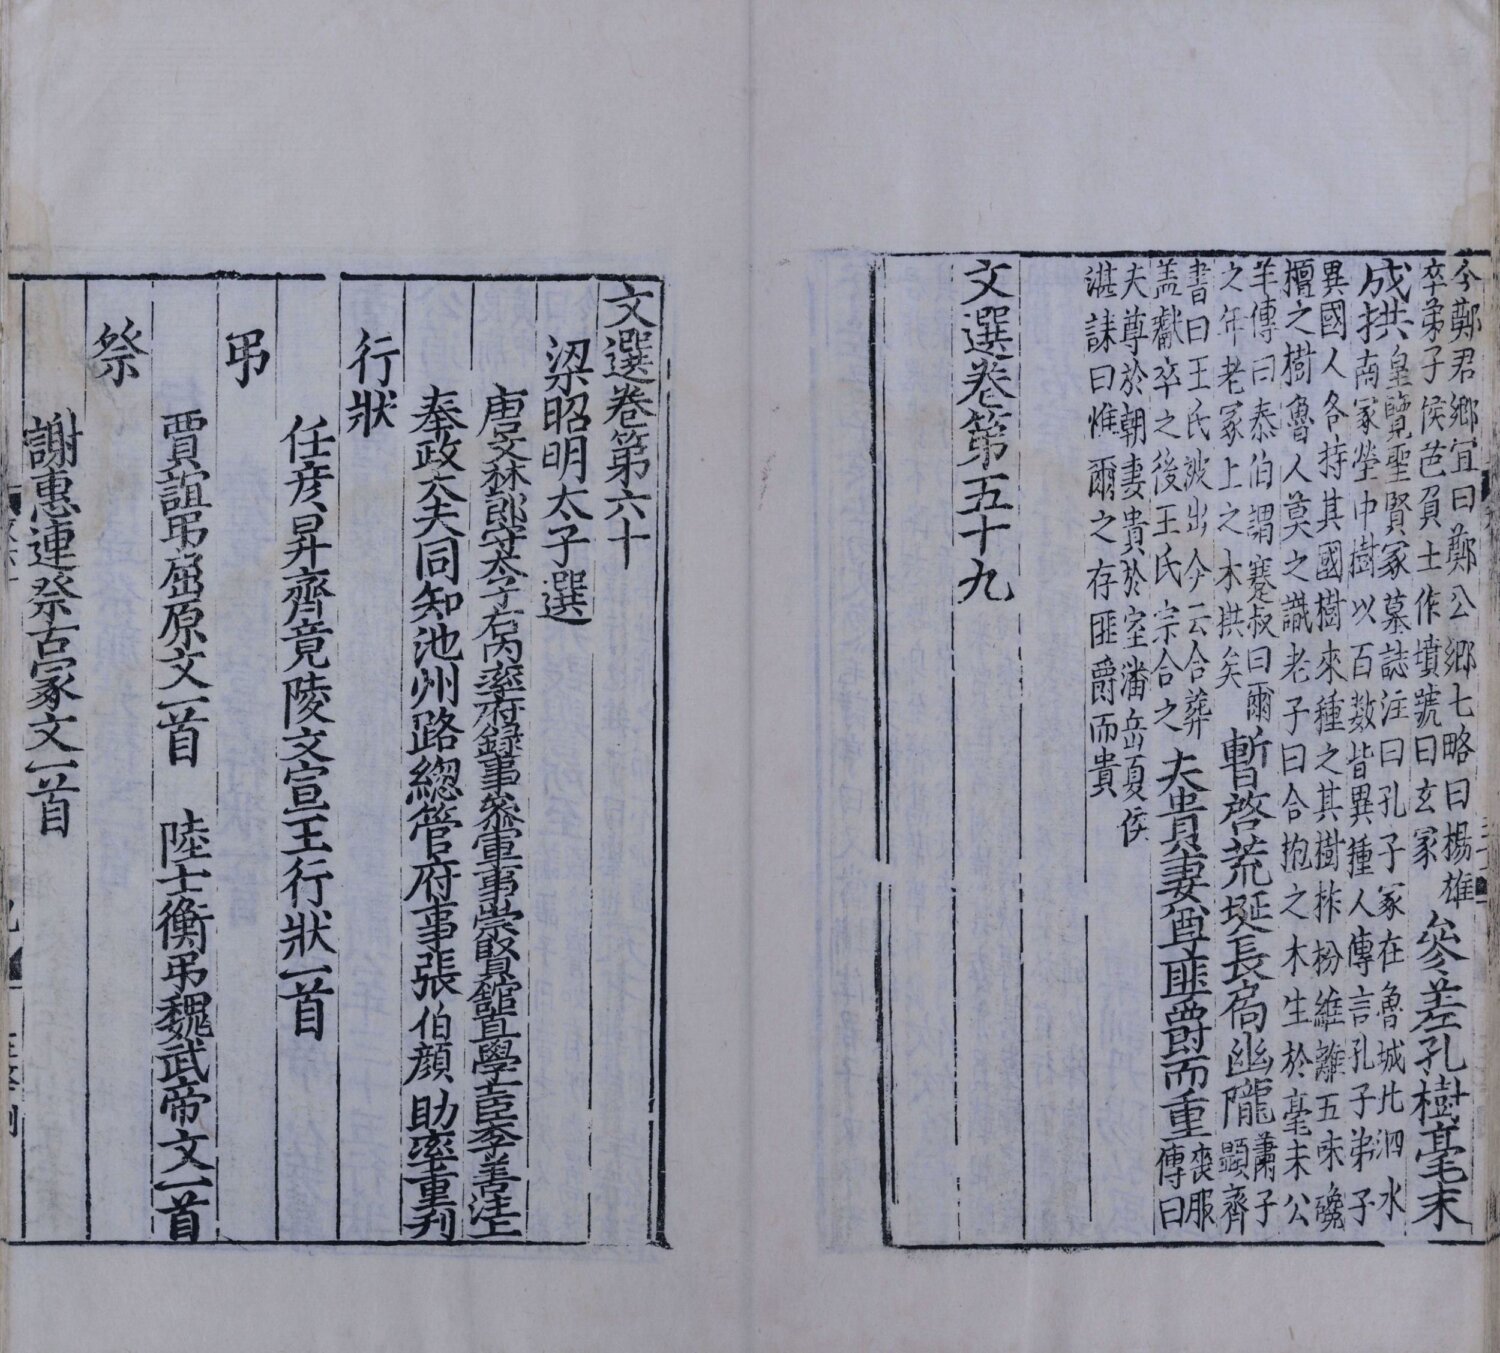 今鄭君鄉宜曰鄭公鄉七略曰楊雄
卒弟子侯芭負土作墳號曰玄冢
參差孔樹毫末
成拱
皇覽聖賢冢墓誌注曰孔子冢在魯城北泗水
南冢塋中樹以百數皆異種人傳言孔子弟子
異國人各持其國樹來種之其樹柞枌維離五味毚
檀之樹魯人莫之識老子曰合抱之木生於毫末公
羊傳曰秦伯謂蹇叔曰爾
之年老冢上之木拱矣
暫啓荒埏長扃幽隴
蕭子
顯齊
書曰王氏波出今云合葬
蓋瓛卒之後王氏宗合之
夫貴妻尊匪爵而重
喪服
傳曰
夫尊於朝妻貴於室潘岳夏侯
湛誄曰惟爾之存匪爵而貴
文選卷第五十九
文選卷第六十
梁昭明太子選
唐文林郎守太子右內率府録事參軍事崇賢館直學士臣李善注上
奉政大夫同知池州路總管府事張伯顏助率重刋
行狀
任彦昇齊竟陵文宣王行狀一首
弔
賈誼弔屈原文一首 陸士衡弔魏武帝文一首
祭
謝惠連祭古冢文一首